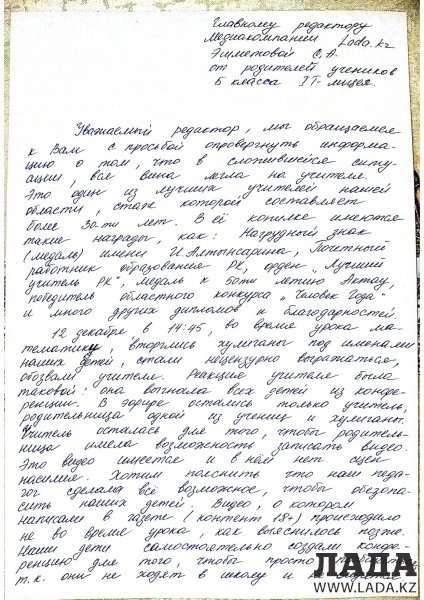 Главному редактору
Медиакомпании Lada.kz
Эшметовой С.А.
от родителей учеников
5 класса IT-лицея.
Уважаемый редактор, мы обращаемся
к Вам с просьбой опровергнуть информа-
цию о том, что в сложившейся ситу-
ации, вся вина легла на учителе.
Это один из лучших учителей нашей
области, стаж которой составляет
более 30ти лет. В её копилке имеются
такие награды, как: Нагрудный знак
(медаль) имени И.Алтынсарина, Почетный
работник образования РК, орден „Лучший
учитель РК", медаль к 50ти летию Актау,
победитель областного конкурса „Человек Года"
и много других дипломов и благодарностей.
12 декабря в 14:45, во время урока ма-
тематики вторглись хулиганы под именами
наших детей, стали нецензурно выражаться,
обозвали учителя. Реакция учителя была
таковой: она выгнала всех детей из конфе-
ренции. В эфире остались только учитель,
родительница одной из учениц и хулиганы.
Учитель осталась для того, чтобы родитель-
ница имела возможность записать видео.
Это видео имеется и в нём нет сцен
насилия. Хотим пояснить что наш педа-
гог сделала всё возможное, чтобы обезопа-
сить наших детей. Видео, о котором
написали в газете (контент 18+) происходило
не во время урока, как выяснилось позже.
Наши дети самостоятельно создали конфе-
ренцию для того, чтобы просто
т.к. они не ходят в школу и
ЛАДА
WWW.LADA.KZ